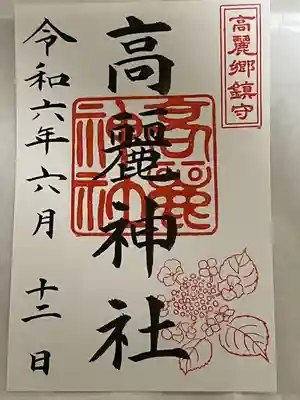 高麗郷鎮守
高麗神社
高麗神社
令和六年六月十二日